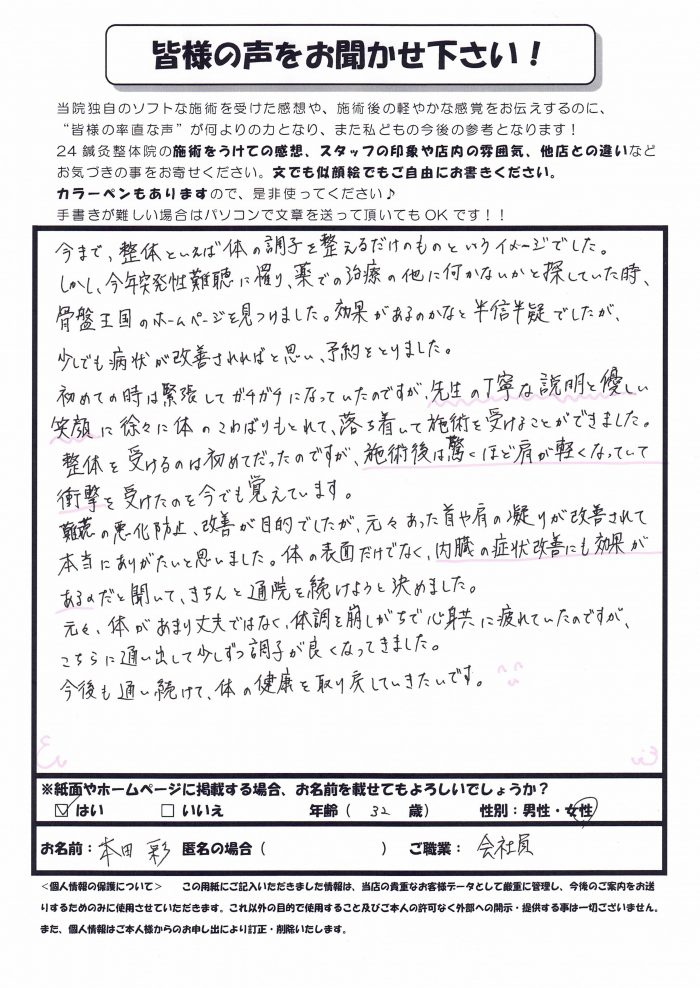 皆様の声をお聞かせ下さい！
当院独自のソフトな施術を受けた感想や、施術後の軽やかな感覚をお伝えするのに、
“皆様の率直な声”が何よりの力となり、また私どもの今後の参考となります！
24鍼灸整体院の施術をうけての感想、スタッフの印象や店内の雰囲気、他店との違いなど
お気づきの事をお寄せください。文でも似顔絵でもご自由にお書きください。
カラーペンもありますので、是非使ってください♪
手書きが難しい場合はパソコンで文章を送って頂いてもOKです！！
今まで、整体といえば体の調子を整えるだけのものというイメージでした。
しかし、今年突発性難聴に罹り、薬での治療の他に何かないかと探していた時、
骨盤王国のホームページを見つけました。効果があるのかなと半信半疑でしたが、
少しでも病状が改善されればと思い、予約をとりました。
初めての時は緊張してガチガチになっていたのですが、先生の丁寧な説明と優しい
笑顔に徐々に体のこわばりもとれて、落ち着いて施術を受けることができました。
整体を受けるのは初めてだったのですが、施術後は驚くほど肩が軽くなっていて
衝撃を受けたのを今でも覚えています。
難聴の悪化防止、改善が目的でしたが、元々あった首や肩の凝りが改善されて
本当にありがたいと思いました。体の表面だけでなく、内臓の症状改善にも効果が
あるのだと聞いて、きちんと通院を続けようと決めました。
元々、体があまり丈夫ではなく、体調を崩しがちで心身共に疲れていたのですが、
こちらに通い出して少しずつ調子が良くなってきました。
今後も通い続けて、体の健康を取り戻していきたいです。
※紙面やホームページに掲載する場合、お名前を載せてもよろしいでしょうか？
☑はい □いいえ 年齢（ 32 歳） 性別：男性・女性
お名前：本田 彩 匿名の場合（ ） ご職業：会社員
＜個人情報の保護について＞ この用紙にご記入いただきました情報は、当店の貴重なお客様データとして厳重に管理し、今後のご案内をお送
りするためのみに使用させていただきます。これ以外の目的で使用すること及びご本人の許可なく外部への開示・提供する事は一切ございません。
また、個人情報はご本人様からのお申し出により訂正・削除いたします。